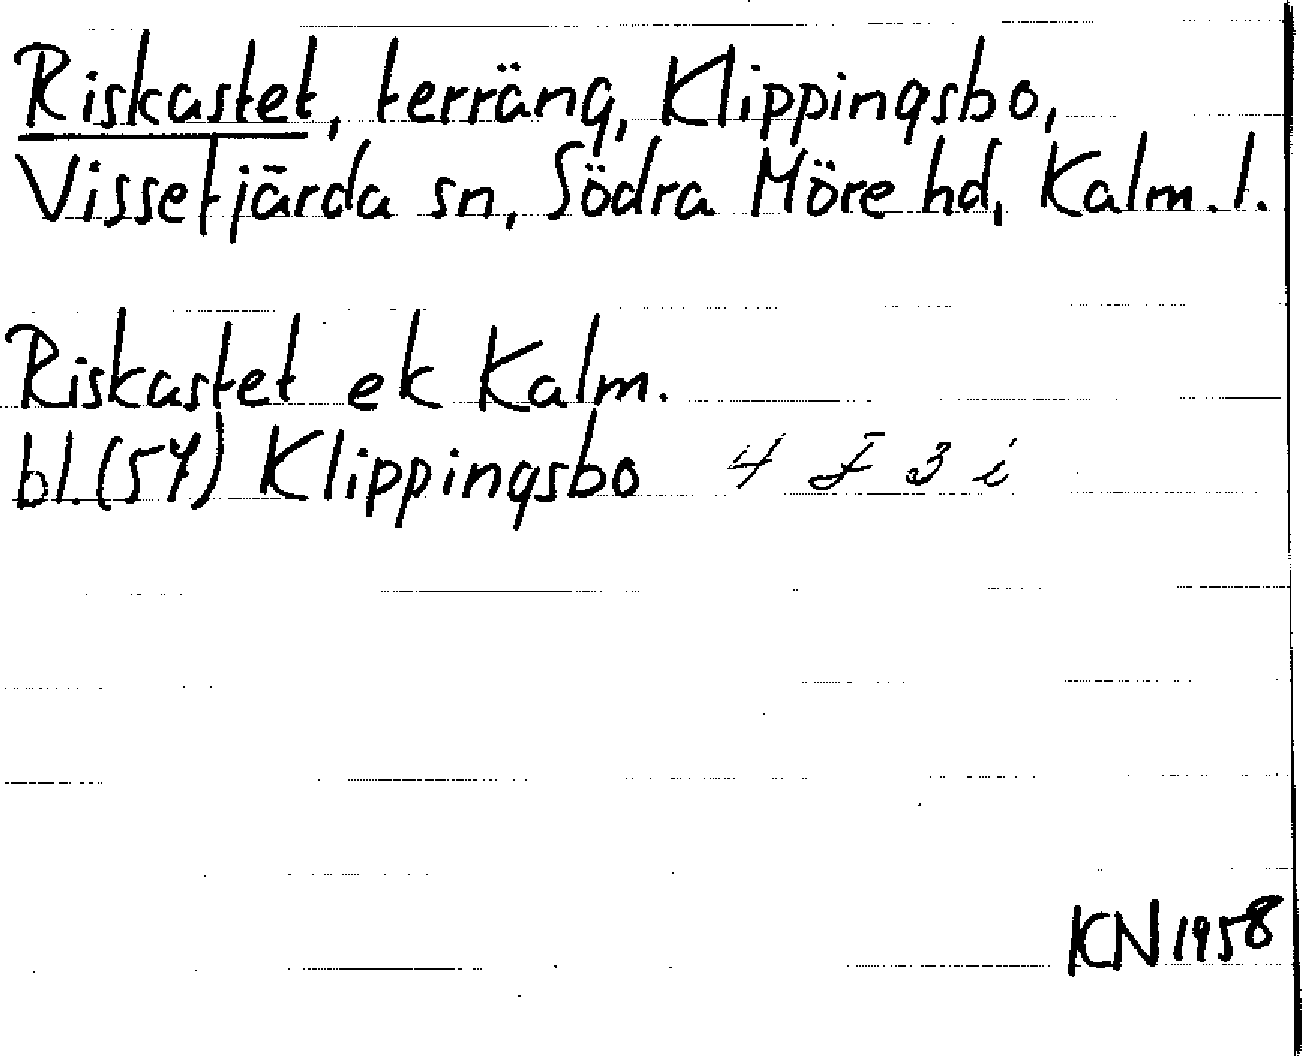 Riskastet, terräng, Klippingsbo,
Vissefjärda sn, Södra Möre hd, Kalm. l.
Riskastet ek Kalm.
bl. (57) Klippingsbo 4 F 3 i
KN 1958